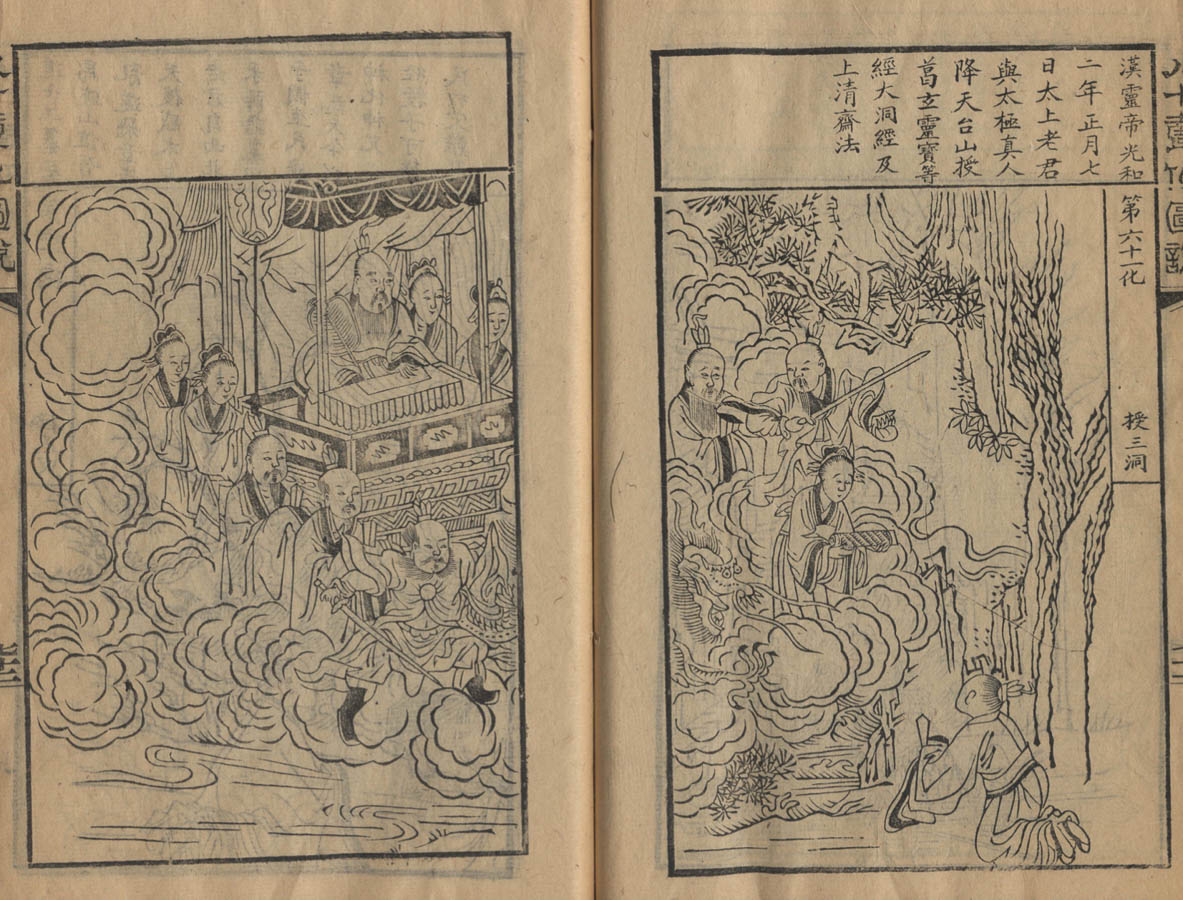 漢靈帝光和
二年正月七
日太上老君
與太極真人
降天台山授
葛玄靈寶等
經大洞經及
上清齋法
第六十一化
授三洞